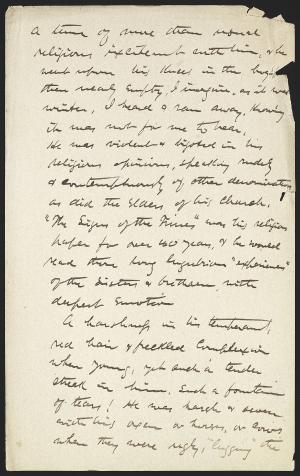 A time of more than usual
religious excitement with him, & he
went upon his knees in the
then nearly empty, I imagine, as it was
winter, I heard & ran away, knowing
it was not for me to hear.
He was violent & bigoted in his
religious opinions, speaking rudely
& contemptuously of other denominations,
as did the Elders of his Church.
"The Signs of the Times" was his religious
paper for over 40 years, & he would
read those long lugubrious "experiences"
of the sisters & brethren with
deepest emotion
A harshness in his temperament,
red hair & freckled complexion
when young, yet such a tender
streak in him. Such a fountain
of tears! He was harsh & severe
with his oxen or horses, or cows
when they were ugly, "lugging" the